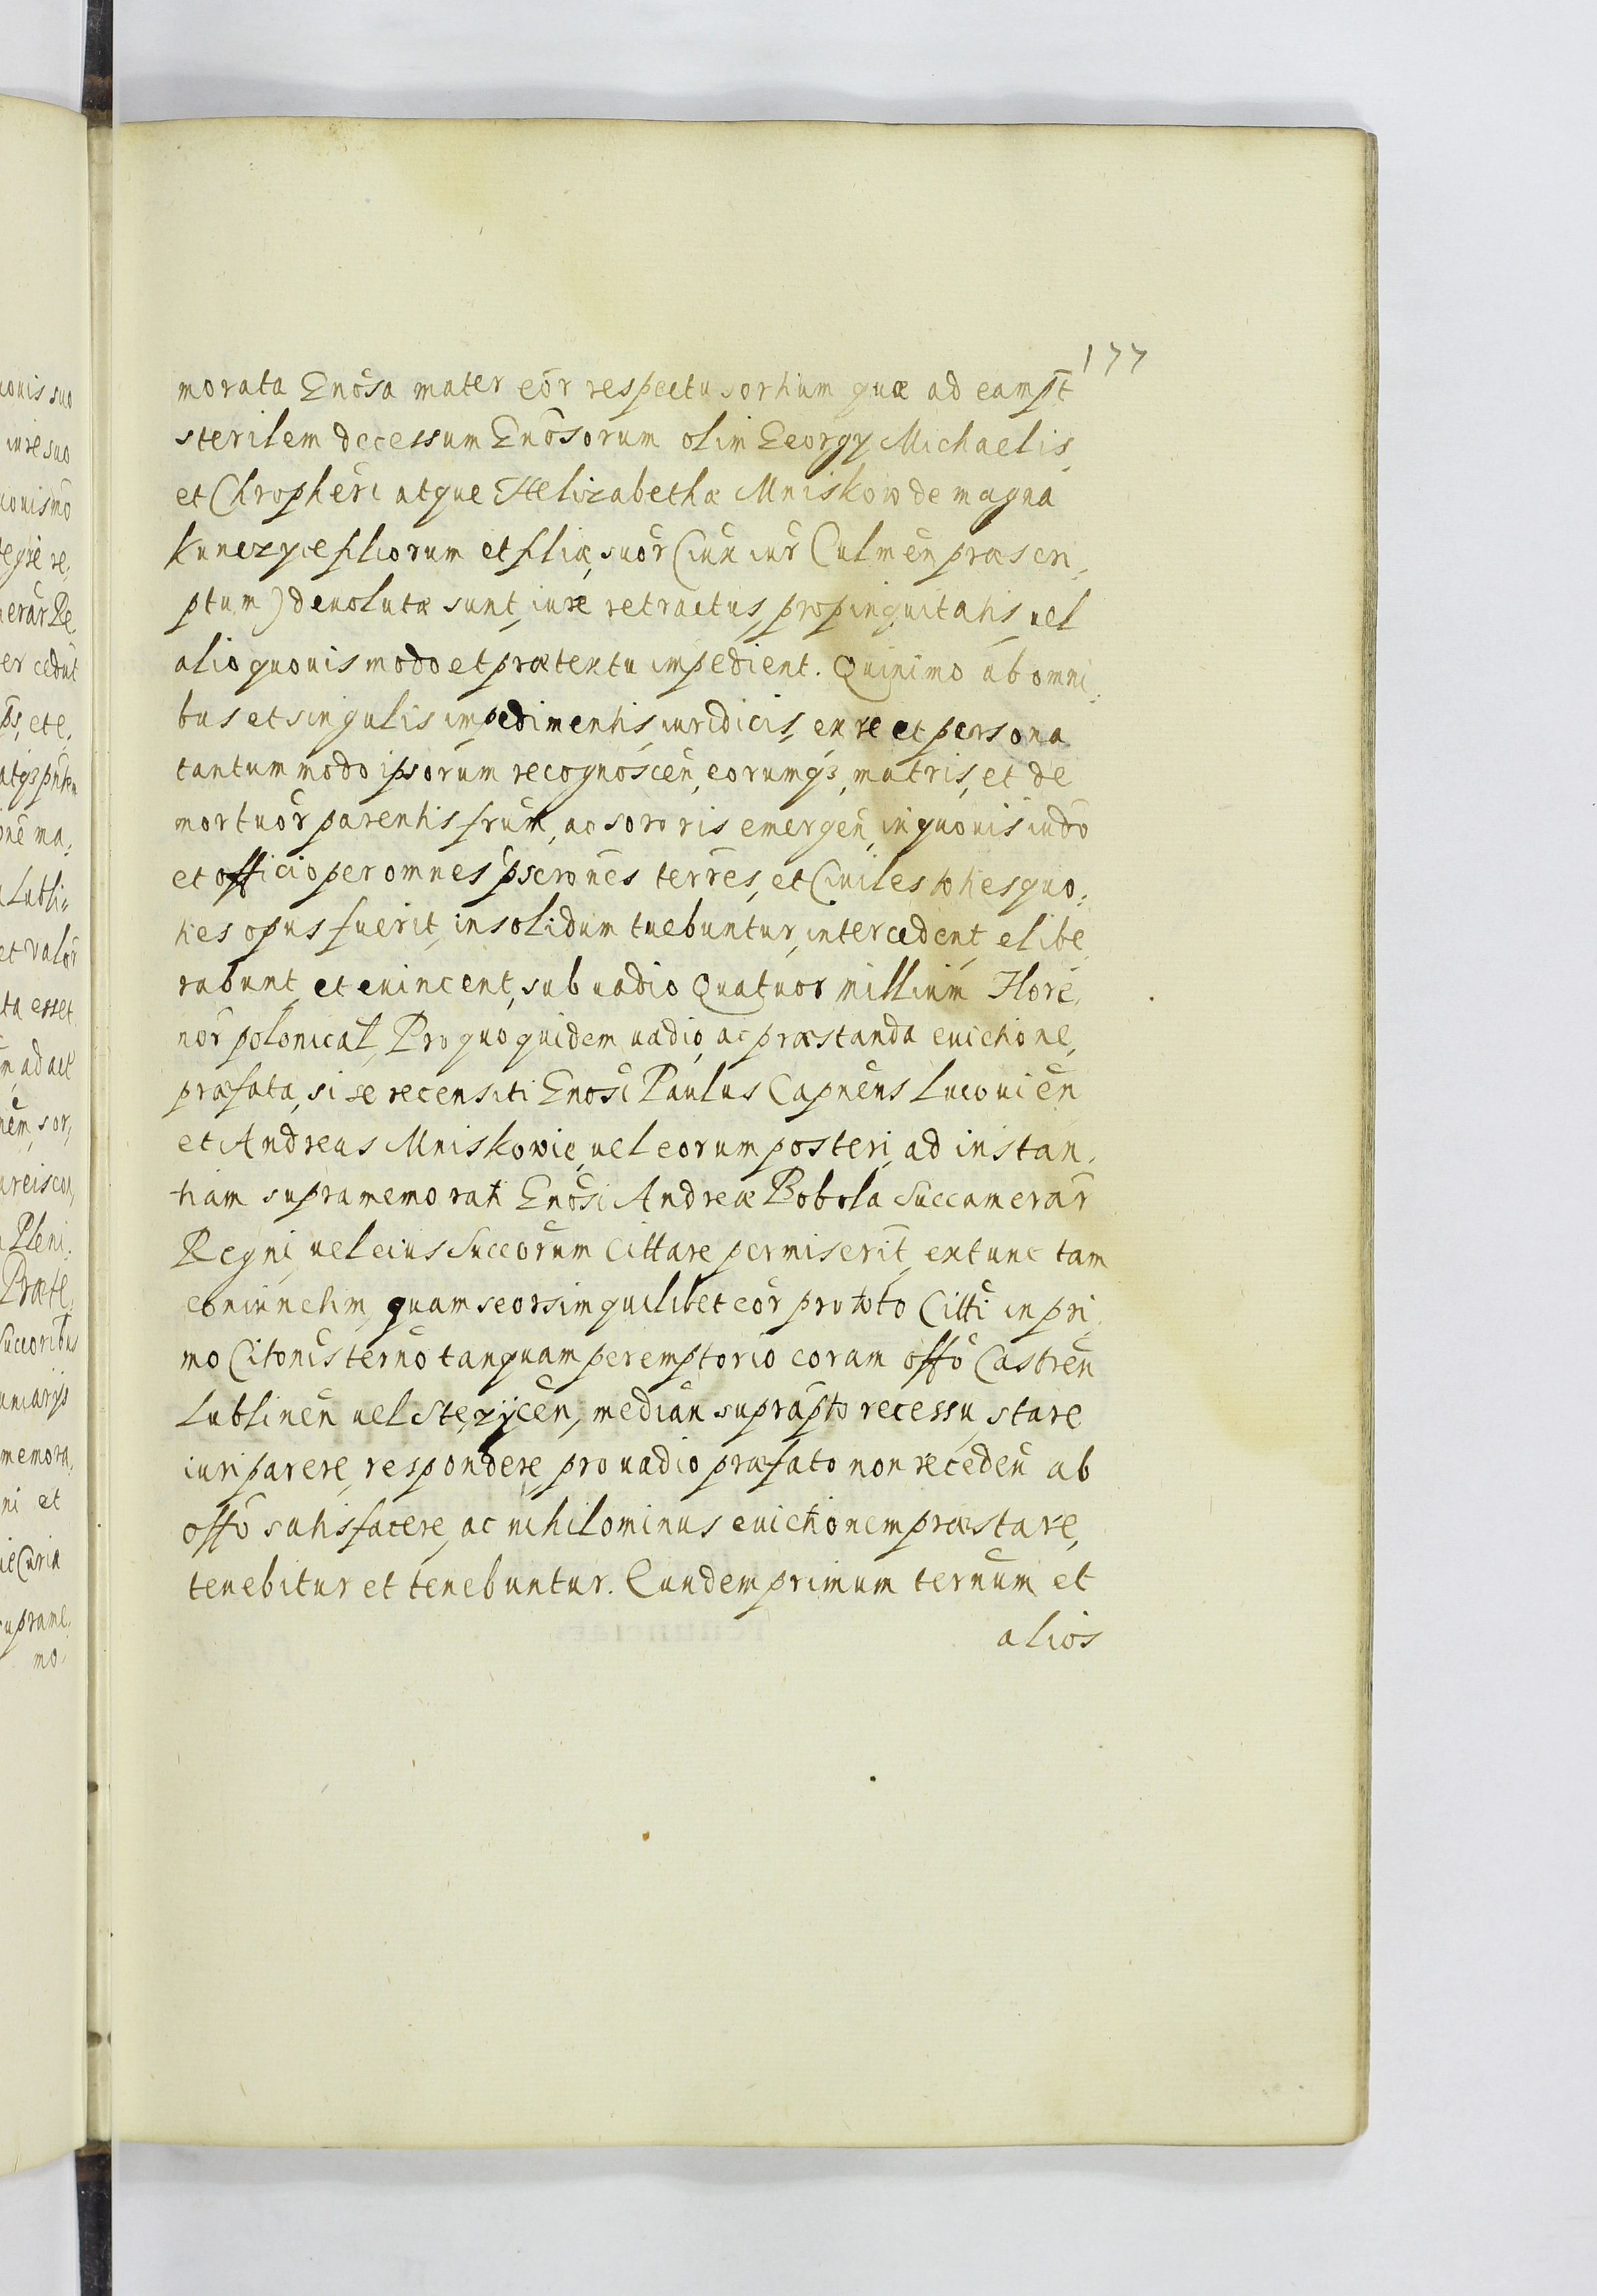 177
morata Gnosa mater eor respectu sortium quæ ad eam pt
sterilem decessum Gnosorum olim Georgy Michaelis,
et Chropheri atque Helizabethæ Mniskow de magna
Kunczyce filiorum et filiæ, suor (iux iur Culmen præscri,
ptum) deuolutæ sunt, iure retractus, propinquitatis, uel
alio quouis modo et prætextu impedient. Quinimo ab omni,
bus et singulis impedimentis, iuridicis, ex re et persona
tantummodo ipsorum recognoscen, eorumq3, matris, et de
mortuor parentis frum, ac sororis emergen, in quouis iudo
et officio per omnes pscrones terres, et Ciuiles toties quo,
ties opus fuerit, in solidum tuebuntur, intercedent, elibe,
rabunt et euincent, sub uadio Quatuor millium Flore,
nor polonical, Pro quo quidem uadio, ac præstanda euictione,
præfata, si se recensiti Gnosi Paulus Capnens Lucouien
et Andreas Mniskowie, uel eorum posteri, ad instan,
tiam supramemorati Gnosi Andreæ Bobola Succamerar
Regni, uel eius Succorum Cittare permiserit, extunc tam
coniunctim, quam seorsim quilibet eor pro toto Citti in pri,
mo Citonis terno tanquam peremptorio coram offo Castren
Lublinen uel Stezycen, median suprapto recessu, stare
iuri parere, respondere, pro uadio præfato non receden ab
offo satisfacere, ac nihilominus euictionem præstare,
tenebitur et tenebuntur. Eundem primum ternum et
alios